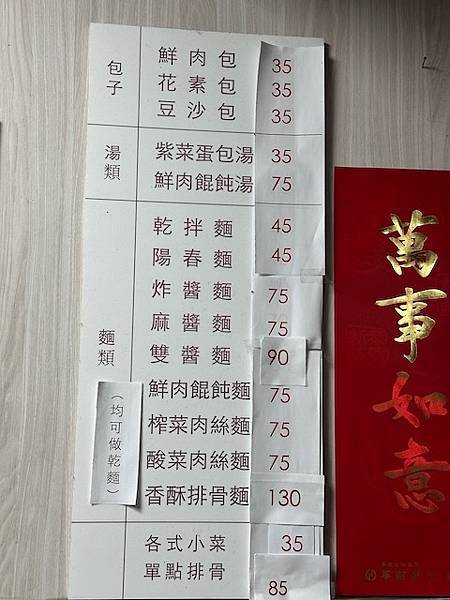 包子
鮮肉包 35
花素包 35
豆沙包 35
湯類
紫菜蛋包湯 35
鮮肉餛飩湯 75
麵類
(均可做乾麵)
乾拌麵 45
陽春麵 45
炸醬麵 75
麻醬麵 75
雙醬麵 90
鮮肉餛飩麵 75
榨菜肉絲麵 75
酸菜肉絲麵 75
香酥排骨麵 130
各式小菜 35
單點排骨 85
萬事如意